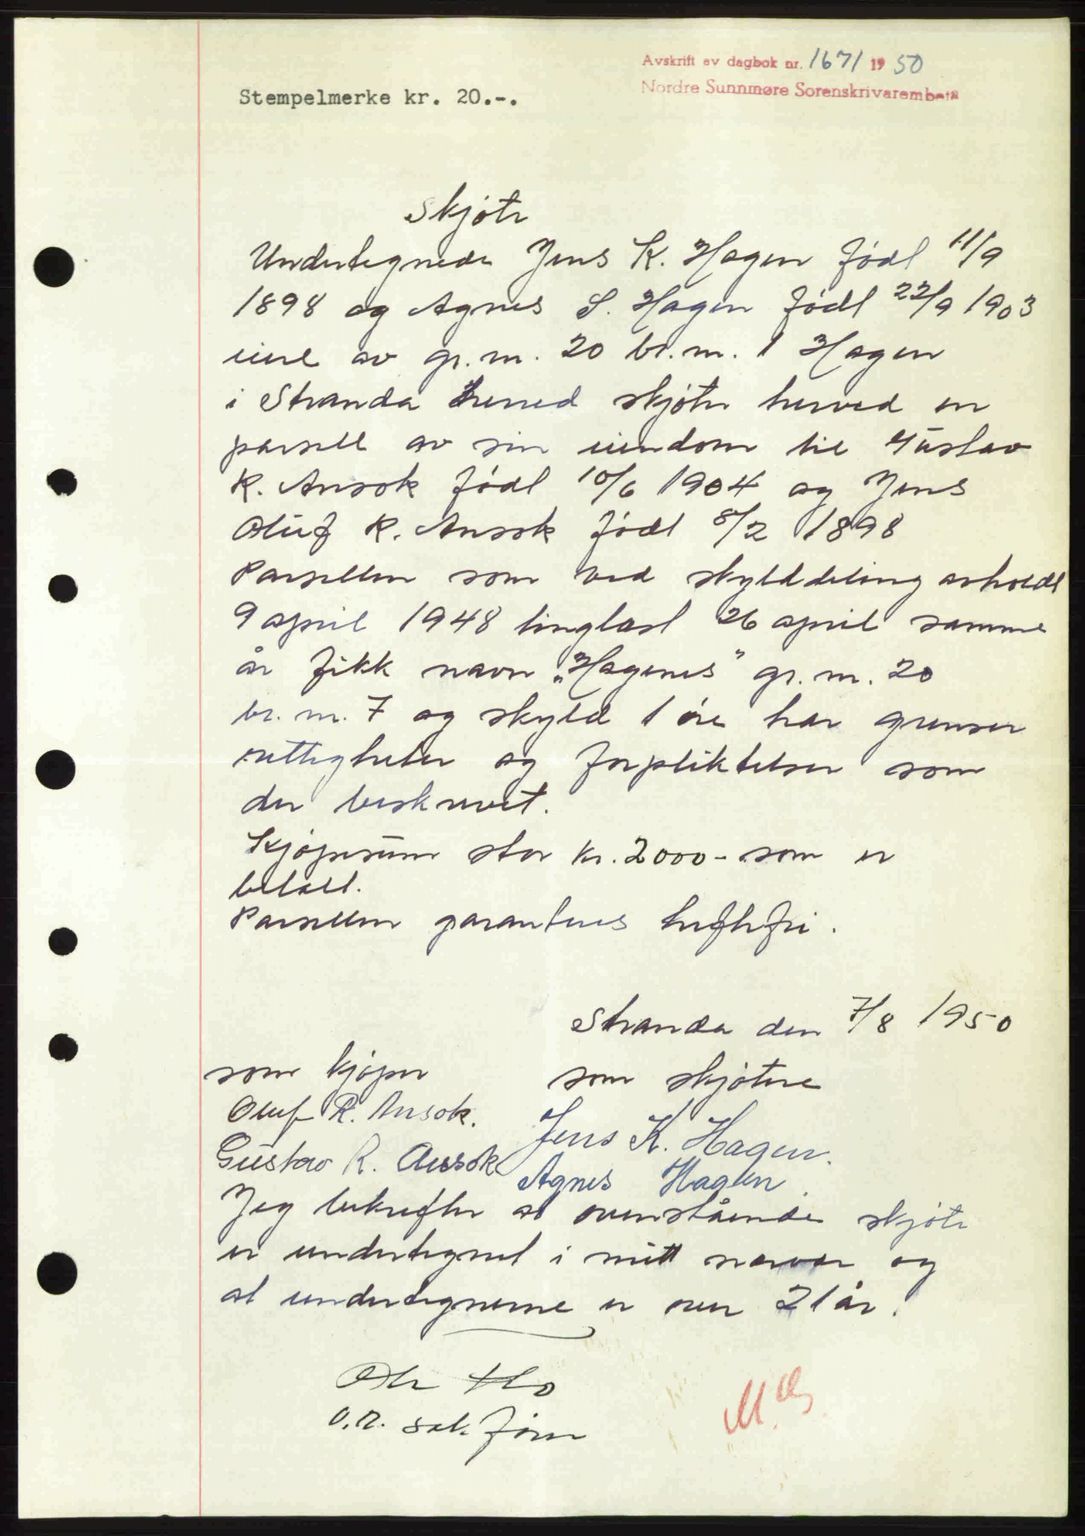 Avskrift av dagbok nr. 1671 1950
Nordre Sunnmøre Sorenskrivarembete
Stempelmerke kr. 20.-.
Skjøte
Undertegnede Jens K. Hagen født 11/9
1898 og Agnes S. Hagen født 22/9 1903
eiere av gr.nr. 20 br.nr. 1 Hagen
i Stranda herred skjøter herved en
parsell av sin eiendom til Gustav
R. Ansok født 10/6 1904 og Jens
Oluf R. Ansok født 8/2 1898
Parsellen som ved skylddeling avholdt
9 april 1948 tinglæst 26 april samme
år fikk navn „Hagenes" gr.nr. 20
br.nr. 7 og skyld 1 øre har grenser
rettigheter og forpliktelser som
der beskrevet.
Kjøpesum stor kr. 2000- som er
betalt.
Parsellen garanteres heftefri.
Stranda den 7/8 1950
som kjøper som skjøtere
Oluf R. Ansok. Jens K. Hagen.
Gustav R. Ansok Agnes Hagen.
Jeg bekrefter at ovenstående skjøte
er undertegnet i mitt nærvær og
at undertegnerne er over 21 år.
O.r. sak.før